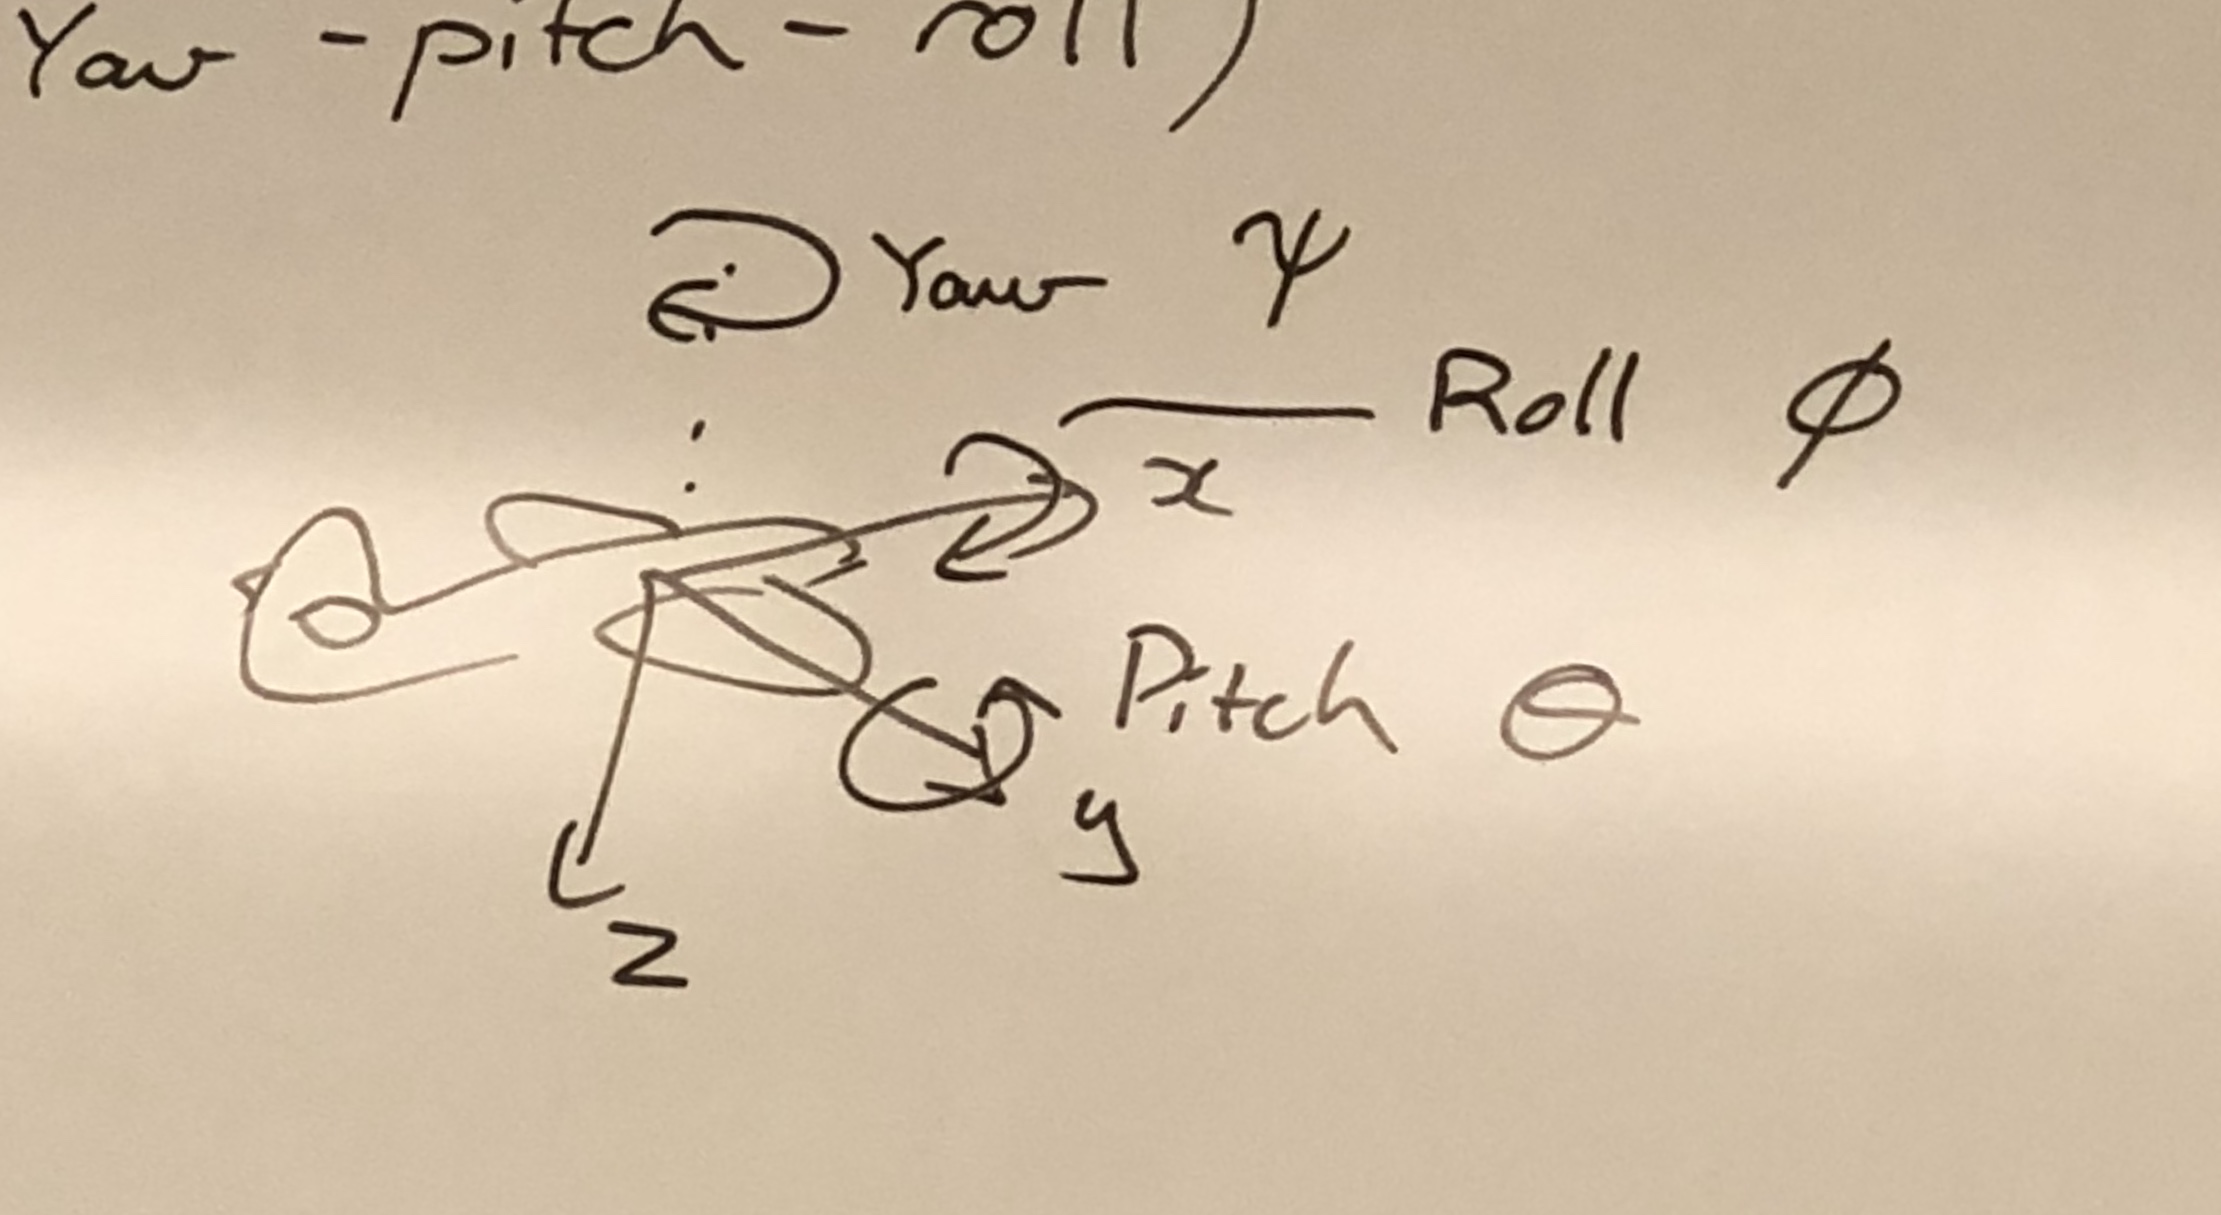 Yaw - pitch - roll)
Yaw ψ
Roll ϕ
x
Pitch θ
y
z